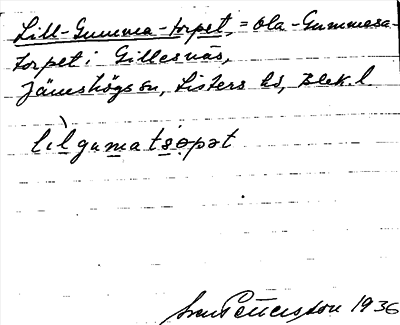 Lill-Gumma-torpet, = Ola-Gummesa-
torpet i Gillesnäs,
Jämshögs sn, Listers hd, Blek. l.
lìlgumatsopət
Sven Pettersson 1936